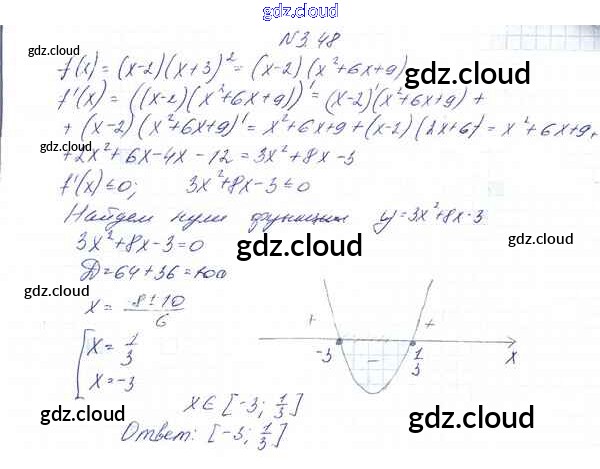 gdz.cloud
№3.48
gdz.cloud
f(x) = (x-2)(x+3)² = (x-2)(x²+6x+9)
gdz.cloud
f'(x) = ((x-2)(x²+6x+9))' = (x-2)'(x²+6x+9) +
+ (x-2)(x²+6x+9)' = x²+6x+9+(x-2)(2x+6) = x²+6x+9+
gdz.cloud
+2x²+6x-4x-12 = 3x²+8x-3
gdz.cloud
f'(x)≤0; 3x²+8x-3≤0
Найдем нули функции y=3x²+8x-3
gdz.cloud
3x²+8x-3=0
gdz.cloud
D=64+36=100
gdz.cloud
x = -8±10/6
+ +
[x = 1/3
x = -3
-3 - 1/3 x
gdz.cloud
x∈[-3; 1/3]
gdz.cloud
Ответ: [-3; 1/3]
gdz.cloud